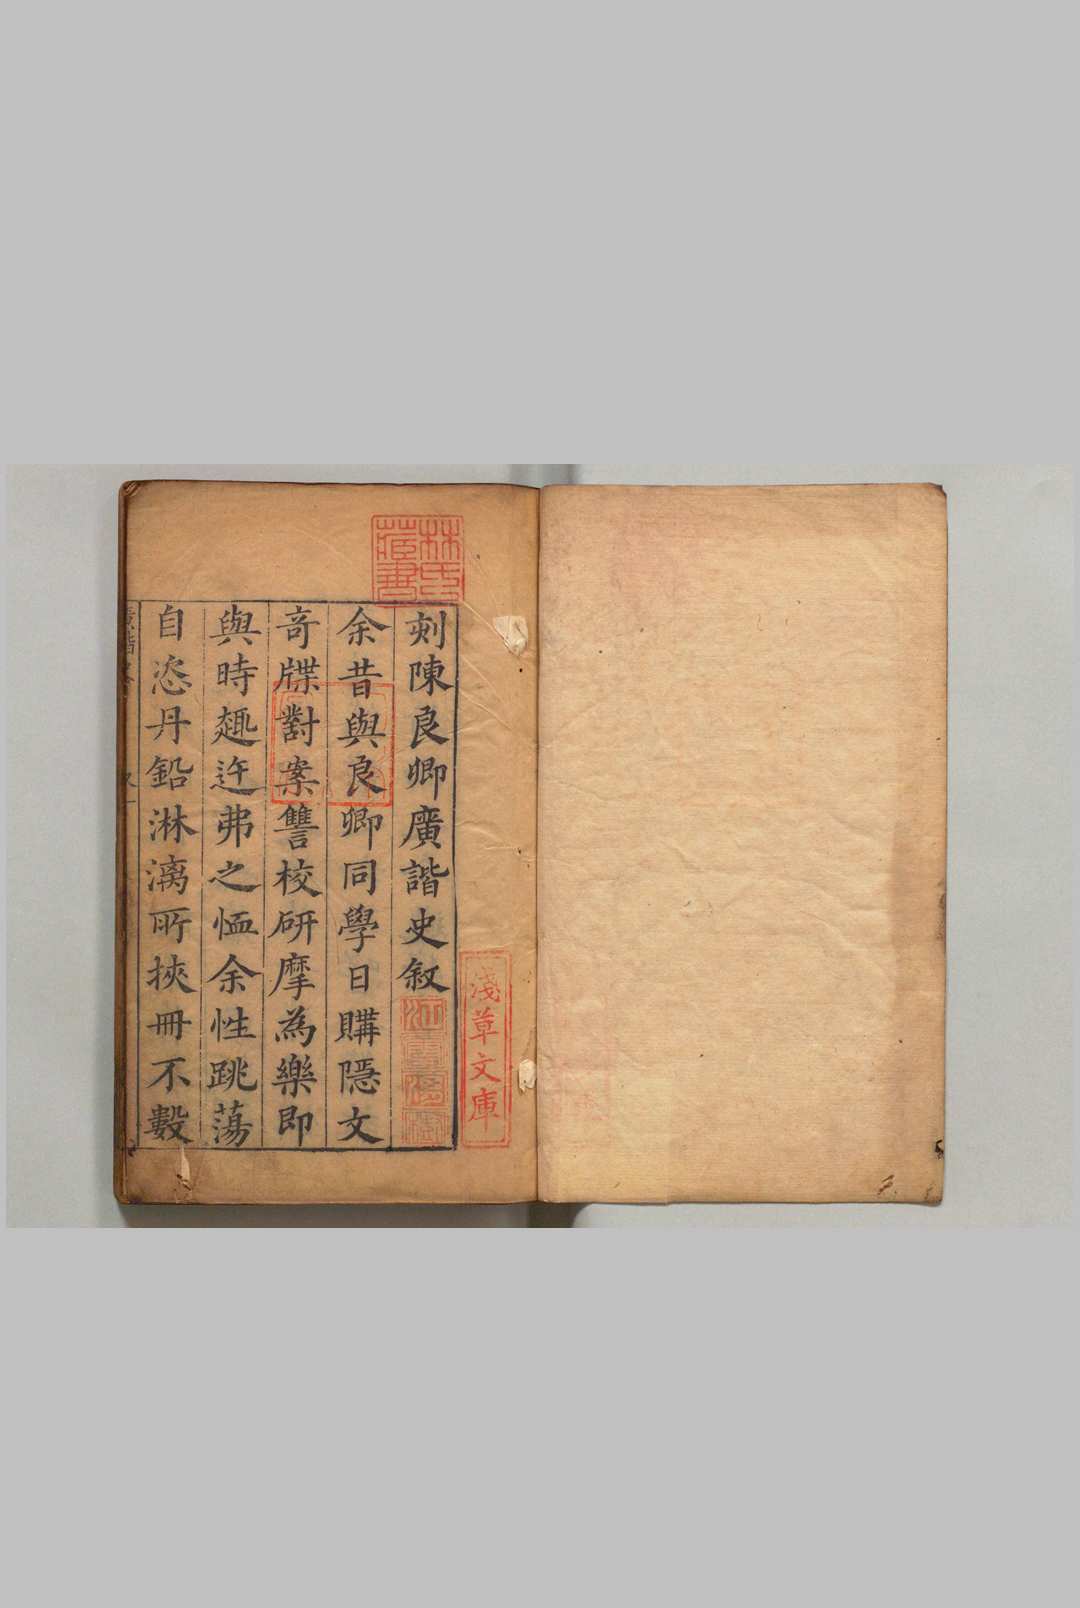 刻陳良卿廣諧史敘
余昔與良卿同學日購隠文
奇牒對案讐校研摩為樂即
與時趣迕弗之恤余性跳蕩
自恣丹鉛淋漓所挾冊不數
林氏藏書
淺草文庫